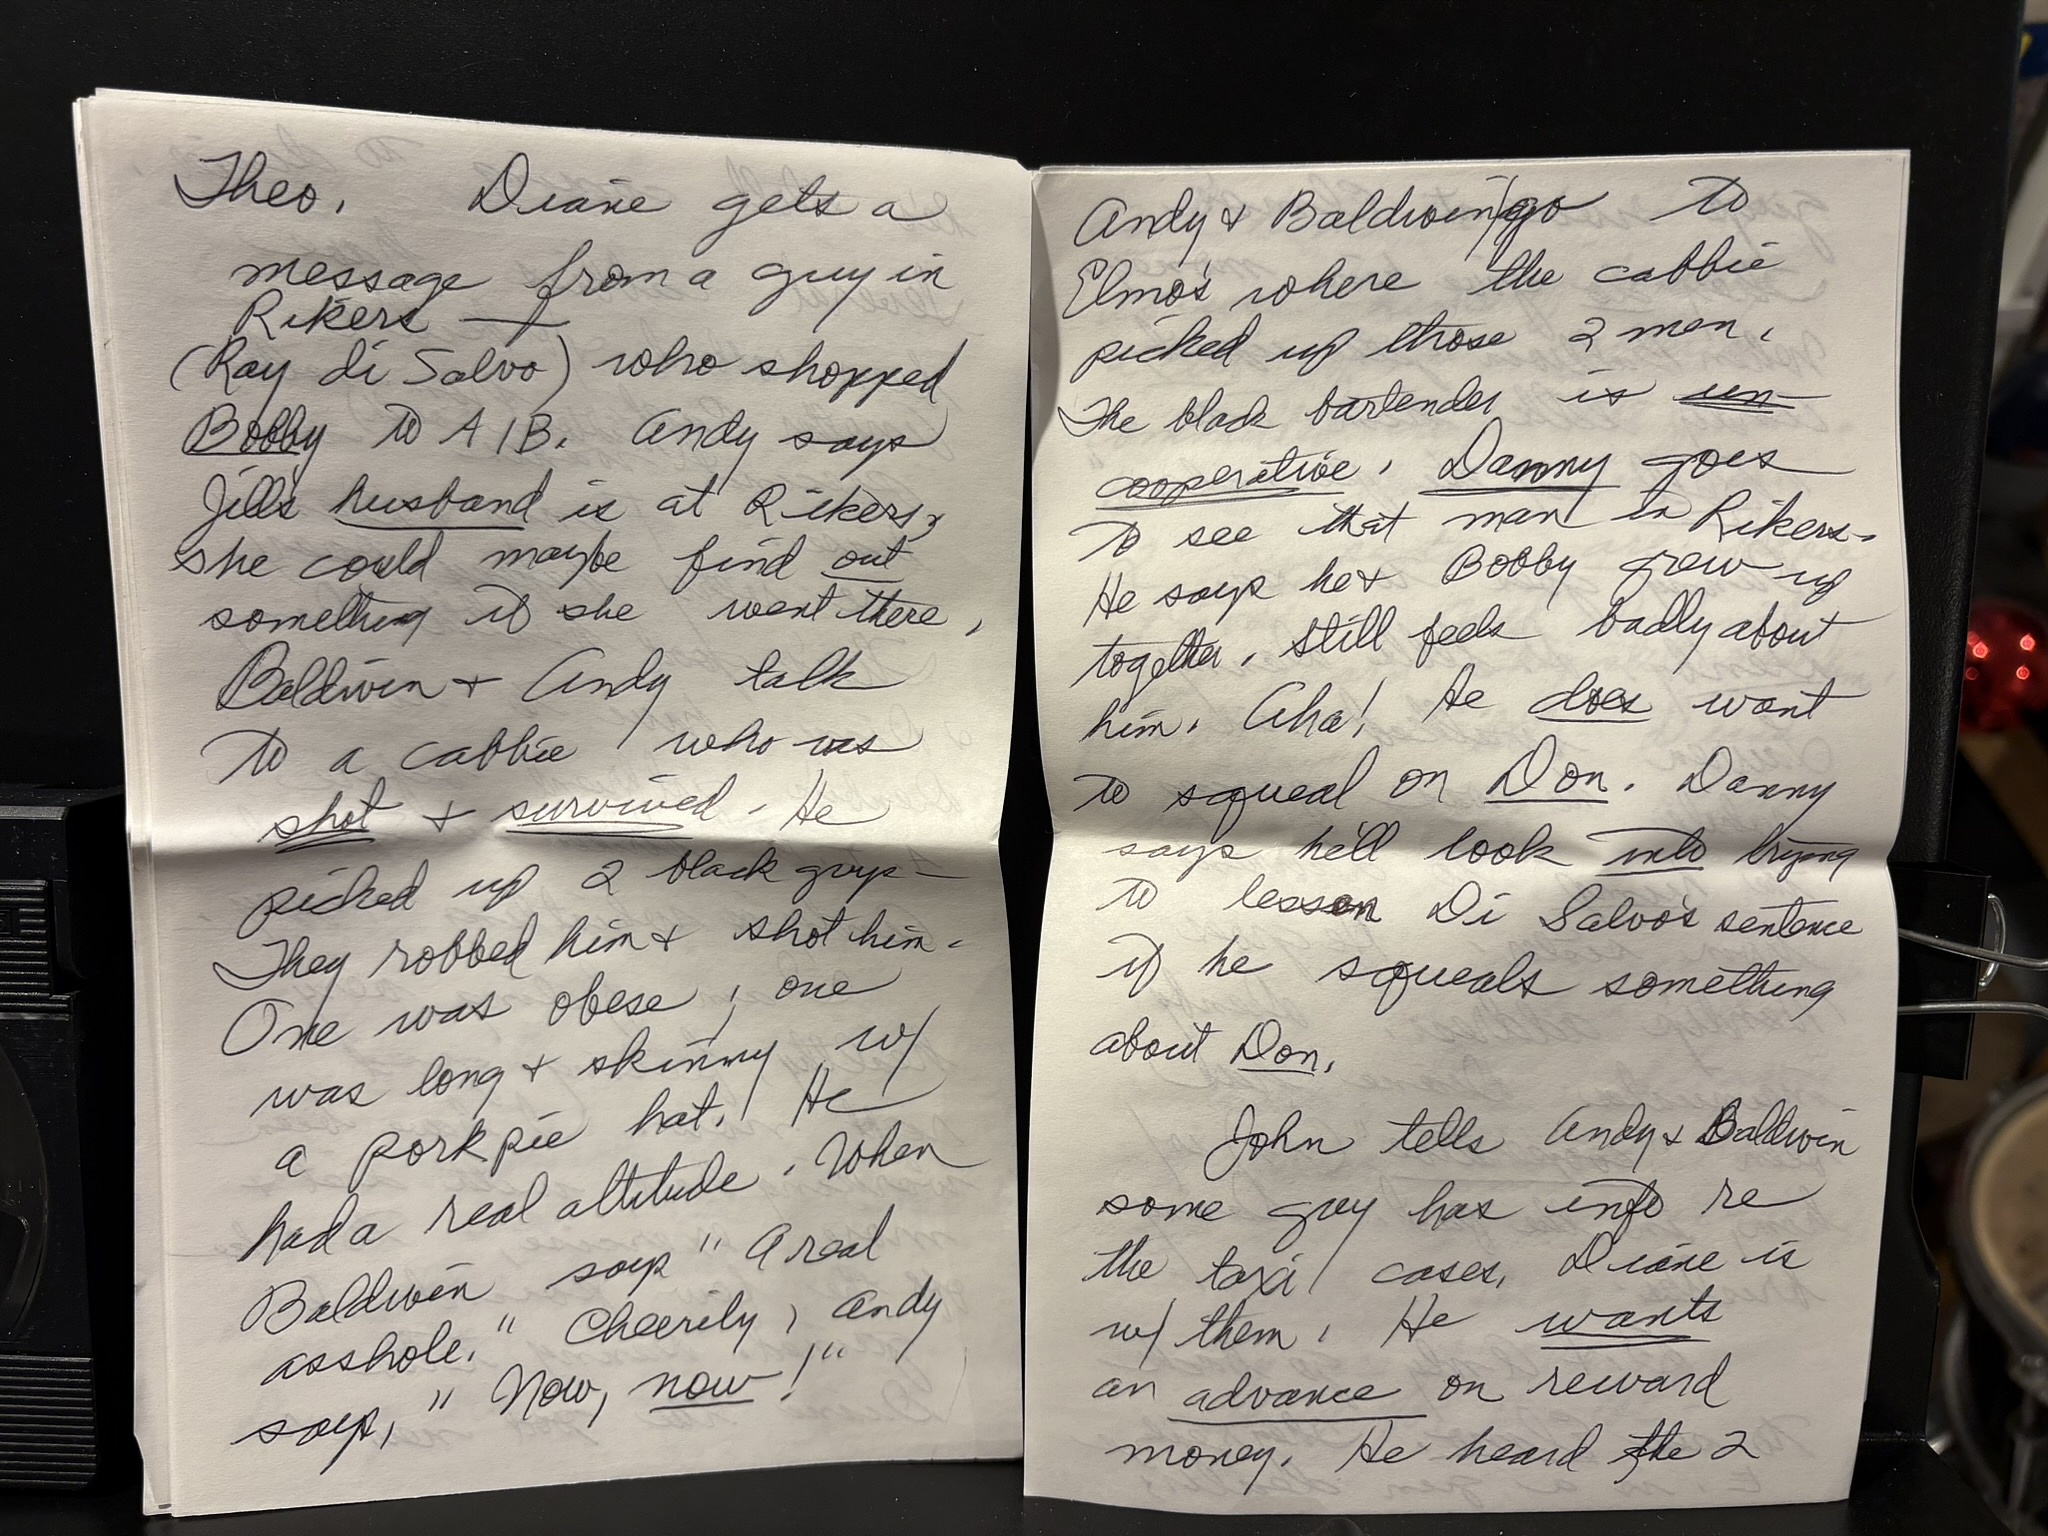 Theo. Diane gets a
message from a guy in
Rikers —
(Ray di Salvo) who shopped
Bobby to A IB. Andy says
Jill's husband is at Rikers,
she could maybe find out
something if she went there,
Baldwin & Andy talk
to a cabbie who was
shot & survived. He
picked up 2 black guys -
They robbed him & shot him.
One was obese, one
was long & skinny w/
a pork pie hat. He
had a real attitude. When
Baldwin says "A real
asshole." Cheerily, Andy
says, "Now, now!"
Andy & Baldwin go to
Elmo's where the cabbie
picked up those 2 men.
The black bartender is un-
cooperative. Danny goes
to see that man in Rikers.
He says he & Bobby grew up
together, still feels badly about
him. Aha! He does want
to squeal on Don. Danny
says he'll look into trying
to lessen Di Salvo's sentence
if he squeals something
about Don.
John tells Andy & Baldwin
some guy has info re
the taxi cases. Diane is
w/ them. He wants
an advance on reward
money. He heard the 2